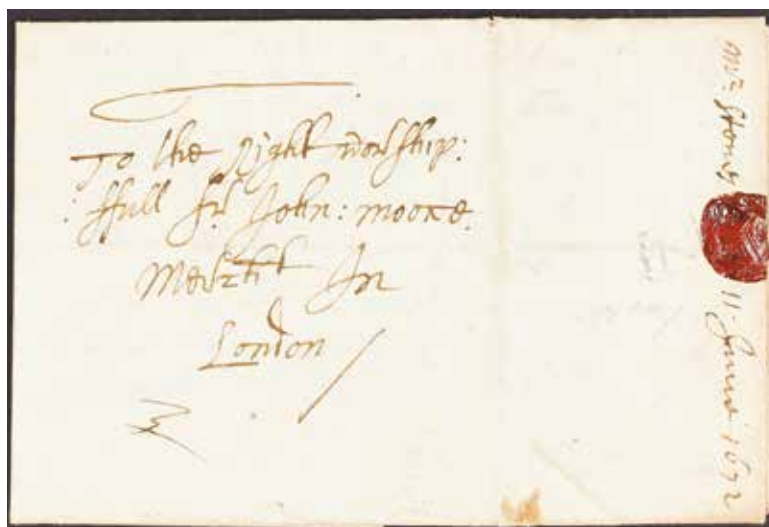 To the Right worship:
ffull Sr. John: moore.
Merchtt In
London
Mr. Stones 11. June 1672